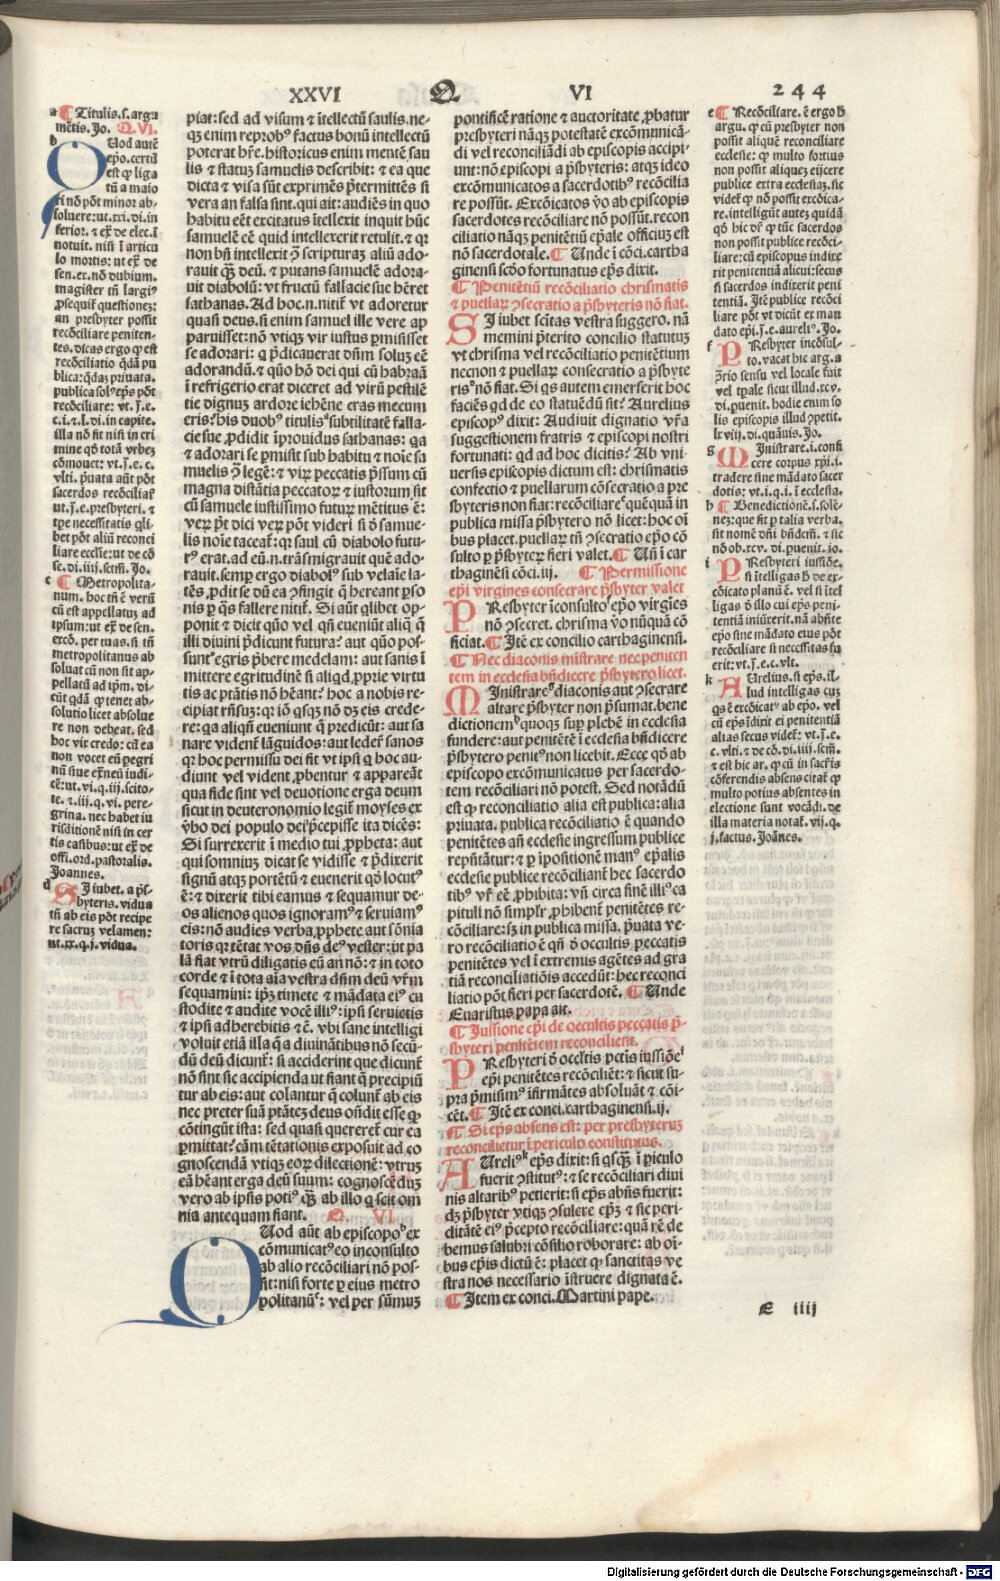 XXVI Q VI 244
a ¶ Titulis.s.argu
mētis. Jo. Q. VI.
b QUod autē
ep̄o.certū
est ꝙ liga
tū a maio
ri nō pōt minor ab-
soluere:ut.xxi.di.in
ferior. ⁊ ex̄ de elec.ī
notuit. nisi ī articu
lo mortis: ut ex̄ de
sen.ex.nō dubium.
magister tn̄ largiꝰ
ꝓsequit᷑ questionez:
an presbyter possit
recōciliare peniten-
tes. dicas ergo ꝙ est
recōciliatio q̄dā pu
blica:q̄daꝫ priuata.
publica solꝰ ep̄s pōt
recōciliare: vt.j.e.
c.i.⁊.l.di.in capite.
illa nō fit nisi in cri
mine qd̄ totā vrbeꝫ
cōmouet: vt.j.e.c.
vlti. p̄uata aūt pōt
sacerdos recōciliaꝶ
ut.j.e.presbyteri. ⁊
tꝑe necessitatis qli-
bet pōt aliū reconci
liare eccl̄ie:ut de cō
se.di.iiij.sctm̄. Jo.
c ¶ Metropolita-
num. hoc tn̄ ē verū
cū est appellatuꝫ ad
ipsum:ut ex̄ de sen.
excō. per tuas.si tn̄
metropolitanus ab
soluat cū non sit ap-
pellatū ad ip̄m. di-
cūt q̄dā ꝙ tenet ab-
solutio licet absolue
re non debeat. sed
hoc vix credo: cū ea
non vocet eū peregri
nū siue ex̄neū iudi-
cē:ut.vi.q.iij.scito-
te. ⁊.iij.q.vi. pere-
grina. nec habet iu
risdictionē nisi in cer
tis casibus:ut ex̄ de
offi.ord.pastoralis.
Joannes.
d SI iubet. a p̄s-
byteris. vidua
tn̄ ab eis pōt recipe
re sacruꝫ velamen:
ut.xx.q.j.vidua.
piat:sed ad visum ⁊ itellectū saulis.ne-
qꝫ enim reprobꝰ factus bonū intellectū
poterat hr̄e.historicus enim mentē sau
lis ⁊ statuꝫ samuelis describit: ⁊ ea que
dicta ⁊ visa sūt exprimēs p̄termittēs si
vera an falsa sint. qui ait: audiēs in quo
habitu eēt excitatus itellexit inquit hūc
samuelē cē quid intellexerit retulit. ⁊ qꝛ
non bn̄ intellexit ꝯ̄ scripturaꝫ aliū ado-
rauit q̄ꝫ deū. ⁊ putans samuelē adora-
uit diabolū: vt fructū fallacie sue hēret
sathanas. Ad hoc.n.nitit᷑ vt adoretur
quasi deus.si enim samuel ille vere ap
paruisset: nō vtiqꝫ vir iustus ꝑmisisset
se adorari: ꝗ p̄dicauerat dn̄m soluꝫ eē
adorandū. ⁊ quō hō dei qui cū habraā
ī refrigerio erat diceret ad virū pestilē
tie dignuꝫ ardore iehēne cras mecum
eris? his duobꝰ titulis subtilitatē falla-
cie sue ꝓdidit īprouidus sathanas: ꝗa
⁊ adorari se ꝑmisit sub habitu ⁊ noīe sa
muelis ꝯ̄ legē: ⁊ viꝝ peccatis p̄ssum cū
magna distātia peccatoꝝ ⁊ iustorum sit
cū samuele iustissimo futuꝝ mētitus ē:
veꝝ p̄t dici veꝝ pōt videri si d̄ samue-
lis noīe taceat᷑: qꝛ saul cū diabolo futu-
rꝰ erat.ad eū.n.trāsmigrauit quē ado-
rauit.semꝑ ergo diabolꝰ sub velaīe la-
tēs.ꝓdit se dū ea ꝯfingit ꝗ̄ hereant ꝑso
nis ꝑ qs fallere nitit᷑. Si aūt qlibet op-
ponit ⁊ dicit quō vel qn̄ eueniūt aliꝗ ꝗ̄
illi diuini p̄dicunt futura? aut quō pos-
sunt egris p̄bere medelam: aut sanis ī
mittere egritudinē si aliqd ꝓprie virtu
tis ac ptātis nō hēant? hoc a nobis re-
cipiat rn̄suꝫ: qꝛ iō qsqꝫ nō dꝫ eis crede-
re: ꝗa aliqn̄ eueniunt ꝗ̄ predicūt: aut sa
nare vident᷑ lāguidos: aut ledet᷑ sanos
qꝛ hoc permissu dei fit vt ipsi ꝗ hoc au-
diunt vel vident ꝓbentur ⁊ appareāt
qua fide sint vel deuotione erga deum
sicut in deuteronomio legit᷑ moyses ex
v̄bo dei populo dei p̄cepisse ita dicēs:
Si surrexerit ī medio tui ꝓpheta: aut
qui somniuꝫ dicat se vidisse ⁊ p̄dixerit
signū atqꝫ portētū ⁊ euenerit qd̄ locutꝰ
ē: ⁊ dixerit tibi eamus ⁊ sequamur de-
os alienos quos ignoramꝰ ⁊ seruiamꝰ
eis: nō audies verba ꝓphete aut sōnia
toris qꝛ tētat vos dn̄s deꝰ vester: ut pa
lā fiat vtrū diligatis eū an nō: ⁊ in toto
corde ⁊ ī tota aīa vestra dn̄m deū vr̄m
sequamini: ip̄ꝫ timete ⁊ mādata eiꝰ cu
stodite ⁊ audite vocē illiꝰ: ipsi seruietis
⁊ ipsi adherebitis ⁊ē. vbi sane intelligi
voluit etiā illa ꝗ̄ a diuināribus nō secū-
dū deū dicunt᷑: si acciderint que dicunt᷑
nō sint sic accipienda ut fiant ꝗ̄ precipiū
tur ab eis: aut colantur ꝗ̄ colunt᷑ ab eis
nec preter suā ptātez deus on̄dit esse ꝙ
cōtingūt ista: sed quasi quererent᷑ cur ea
ꝑmittat: cām tētationis exposuit ad co
gnoscendā vtiqꝫ eoꝝ dilectionē: vtruꝫ
eā hēant erga deū suum: cognoscēduꝫ
vero ab ipsis potiꝰ q̄ꝫ ab illo ꝗ scit om
nia antequam fiant. Q. VI
QUod aūt ab episcopo ex
cōmunicatꝰ eo inconsulto
ab alio recōciliari nō pos-
sit: nisi forte ꝑ eius metro
politanū: vel per sūmuꝫ
pontificē ratione ⁊ auctoritate ꝓbatur
presbyteri nāqꝫ potestatē excōmunicā-
di vel reconciliādi ab episcopis accipi-
unt: nō episcopi a p̄sbyteris: atqꝫ ideo
excōmunicatos a sacerdotibꝰ recōcilia
re possūt. Excōicatos v̄o ab episcopis
sacerdotes recōciliare nō possūt.recon
ciliatio nāqꝫ penitētiū ep̄ale officiuꝫ est
nō sacerdotale. ¶ Unde ī cōci.cartha
ginensi scd̄o fortunatus ep̄s dixit.
¶ Penitētiū recōciliatio chrismatis
⁊ puellaꝝ ꝯsecratio a p̄sbyteris nō fiat.
SI iubet scītas vestra suggero. nā
memini p̄terito concilio statutuꝫ
vt chrisma vel recōciliatio penitētium
necnon ⁊ puellaꝝ consecratio a p̄sbyte
ris nō fiat. Si qs autem emerserit hoc
faciēs qd de eo statuēdū sit? Aurelius
episcopꝰ dixit: Audiuit dignatio vr̄a
suggestionem fratris ⁊ episcopi nostri
fortunati: qd ad hoc dicitis? Ab vni-
uersis episcopis dictum est: chrismatis
confectio ⁊ puellarum cōsecratio a pre
sbyteris non fiat: recōciliare quēquā in
publica missa p̄sbytero nō licet: hoc oī
bus placet.puellaꝝ tn̄ ꝯsecratio ep̄o cō
sulto ꝑ p̄sbyteꝝ fieri valet. ¶ Un̄ ī car
thaginēsi cōci.iij. ¶ Permissione
ep̄i virgines consecrare p̄sbyter valet
PResbyter īconsulto ep̄o virgīes
nō ꝯsecret. chrisma v̄o nūquā cō
ficiat. ¶ Itē ex concilio carthaginensi.
¶ Nec diaconis mīstrare nec peniten
tem in ecclesia bn̄dicere p̄sbytero licet.
MInistrare diaconis aut ꝯsecrare
altare p̄sbyter non p̄sumat. bene
dictionem quoqꝫ suꝑ plebē in ecclesia
fundere: aut penitētē ī ecclesia bn̄dicere
p̄sbytero penitꝰ non licebit. Ecce qd̄ ab
episcopo excōmunicatus per sacerdo-
tem recōciliari nō potest. Sed notādū
est ꝙ reconciliatio alia est publica: alia
priuata. publica recōciliatio ē quando
penitētes an̄ ecclesie ingressum publice
repn̄tātur: ⁊ ꝑ īpositionē manꝰ ep̄alis
ecclesie publice recōciliant᷑ hec sacerdo
tibꝰ vr̄ eē ꝓhibita: vn̄ circa finē illiꝰ ca
pituli nō simplr̄ ꝓhibent᷑ penitētes re-
cōciliare: sꝫ in publica missa. p̄uata ve-
ro recōciliatio ē qn̄ d̄ occultis peccatis
penitētes vel ī extremis agētes ad gra
tiā reconciliatiōis accedūt: hec reconci
liatio pōt fieri per sacerdotē. ¶ Unde
Euaristus papa ait.
¶ Jussione ep̄i de occultis peccatis p̄-
sbyteri penitētem reconcilient.
PResbyteri d̄ occl̄tis pctīs iussiōe
ep̄i penitētes recōciliēt: ⁊ sicut su-
pra p̄misimꝰ īfirmātes absoluāt ⁊ cōi-
cēt. ¶ Itē ex conci.carthaginensi.ij.
¶ Si ep̄s absens est: per presbyteruꝫ
reconcilietur ī periculo constitutus.
AUreliꝰ ep̄s dixit: si qsq̄ꝫ ī ꝑiculo
fuerit ꝯstitutꝰ: ⁊ se recōciliari diui
nis altaribꝰ petierit: si ep̄s abn̄s fuerit:
dꝫ p̄sbyter vtiqꝫ ꝯsulere ep̄ꝫ ⁊ sic peri-
ditātē ei p̄cepto recōciliare: quā rē de
bemus salubri cōsilio roborare: ab oī-
bus ep̄is dictū ē: placet ꝙ sanctitas ve
stra nos necessario īstruere dignata ē.
¶ Item ex conci. Martini pape.
e ¶ Recōciliare. ē ergo h̄
argu. ꝙ cū presbyter non
possit aliquē reconciliare
ecclesie: ꝙ multo fortius
non possit aliqueꝫ eijcere
publice extra ecclesiaꝫ. sic
videt᷑ ꝙ nō possit excōica-
re. intelligūt auteꝫ quidā
qd̄ hic dr̄ ꝙ tūc sacerdos
non possit publice recōci-
liare: cū episcopus indixe
rit penitentiā alicui: secus
si sacerdos indixerit peni
tentiā. Itē publice recōci
liare pōt vt dicūt ex man
dato ep̄i.j.e.aureliꝰ. Jo.
f PResbyter incōsul-
to. vacat hic arg. a
ꝯ̄rio sensu vel locale fuit
vel tꝑale sicut illud.xcv.
di. ꝑuenit. hodie enim so
lis episcopis illud ꝯpetit.
lxviij.di.quāuis. Jo.
g MInistrare.i.confi
cere corpus xp̄i.i.
tradere sine mādato sacer
dotis: vt.i.q.i.ī ecclesia.
h ¶ Benedictionē.s.solē-
neꝫ: que fit ꝑ talia verba.
sit nomē dn̄i bn̄dcm̄. ⁊ sic
nō ob.xcv.di.ꝑuenit. io.
i PResbyteri iussiōe.
si itelligas h̄ de ex-
cōicato planū ē. vel si itel
ligas d̄ illo cui ep̄s peni-
tentiā iniūxerit. nā abn̄te
ep̄o sine mādato eius pōt
recōciliare si necessitas fu
erit: vt.j.e.c.vlt.
k AUrelius. si ep̄s. il-
lud intelligas cuꝫ
qs ē excōicatꝰ ab ep̄o. vel
cū ep̄s īdixit ei penitentiā
alias secus videt᷑: vt.j.e.
c.vlti. ⁊ de cō.di.iiij.sctm̄.
⁊ est hic ar. ꝙ cū in sacris
cōferendis absens citat᷑ ꝙ
multo potius absentes in
electione sunt vocādi. de
illa materia notat᷑. vij.q.
j.factus. Joānes.
E iiij
Digitalisierung gefördert durch die Deutsche Forschungsgemeinschaft - DFG